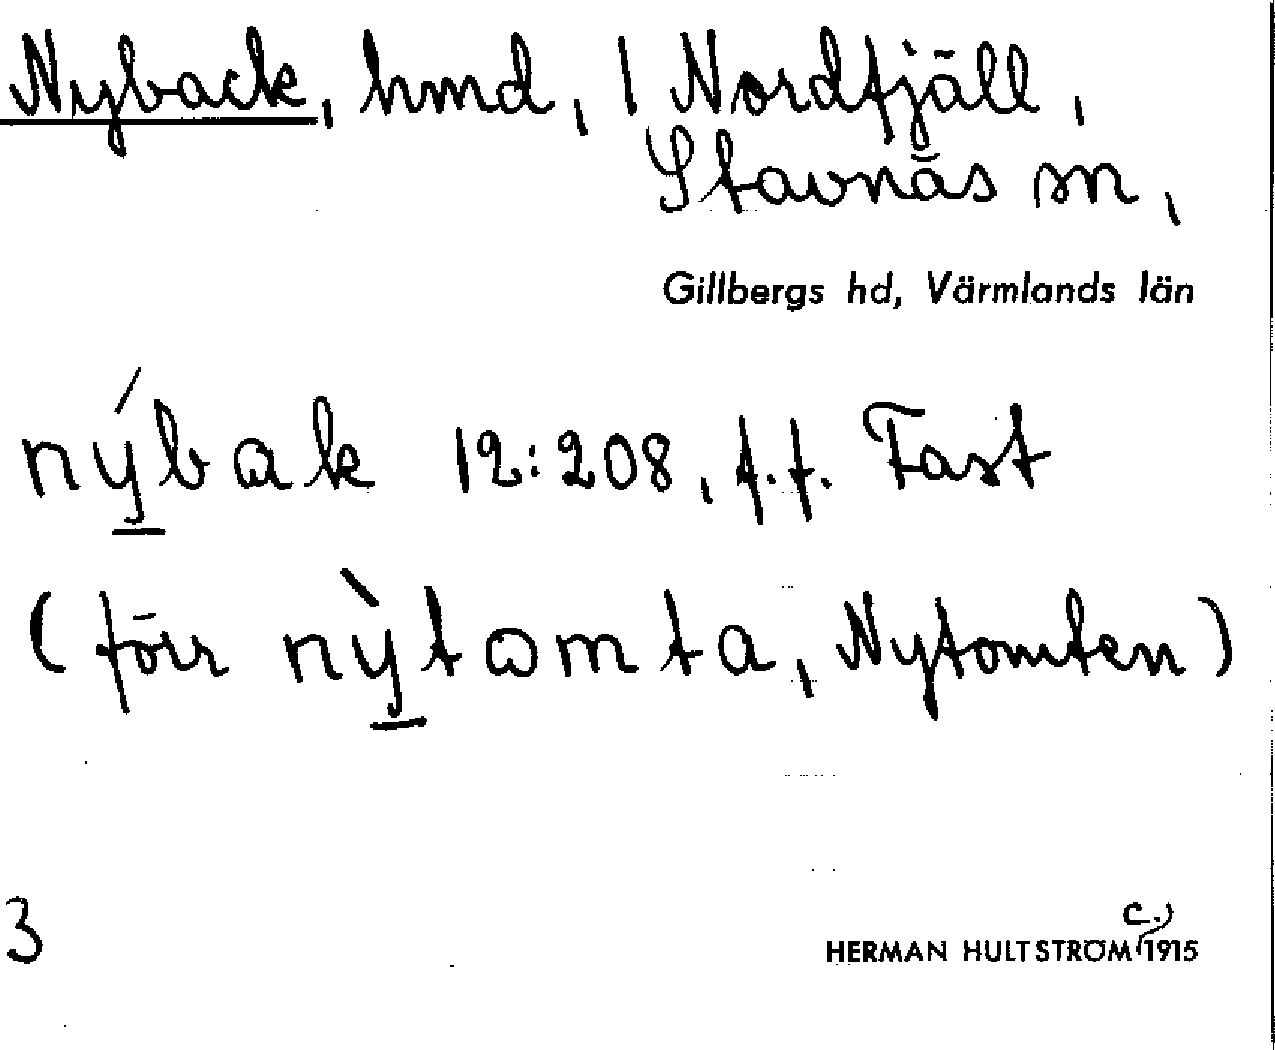 Nyback, hmd, 1 Nordfjäll,
Stavnäs sn,
Gillbergs hd, Värmlands län
nýbak 12:208, f.f. Fast
(förr nỳtomta, Nytomten)
3
c.
HERMAN HULTSTRÖM 1915